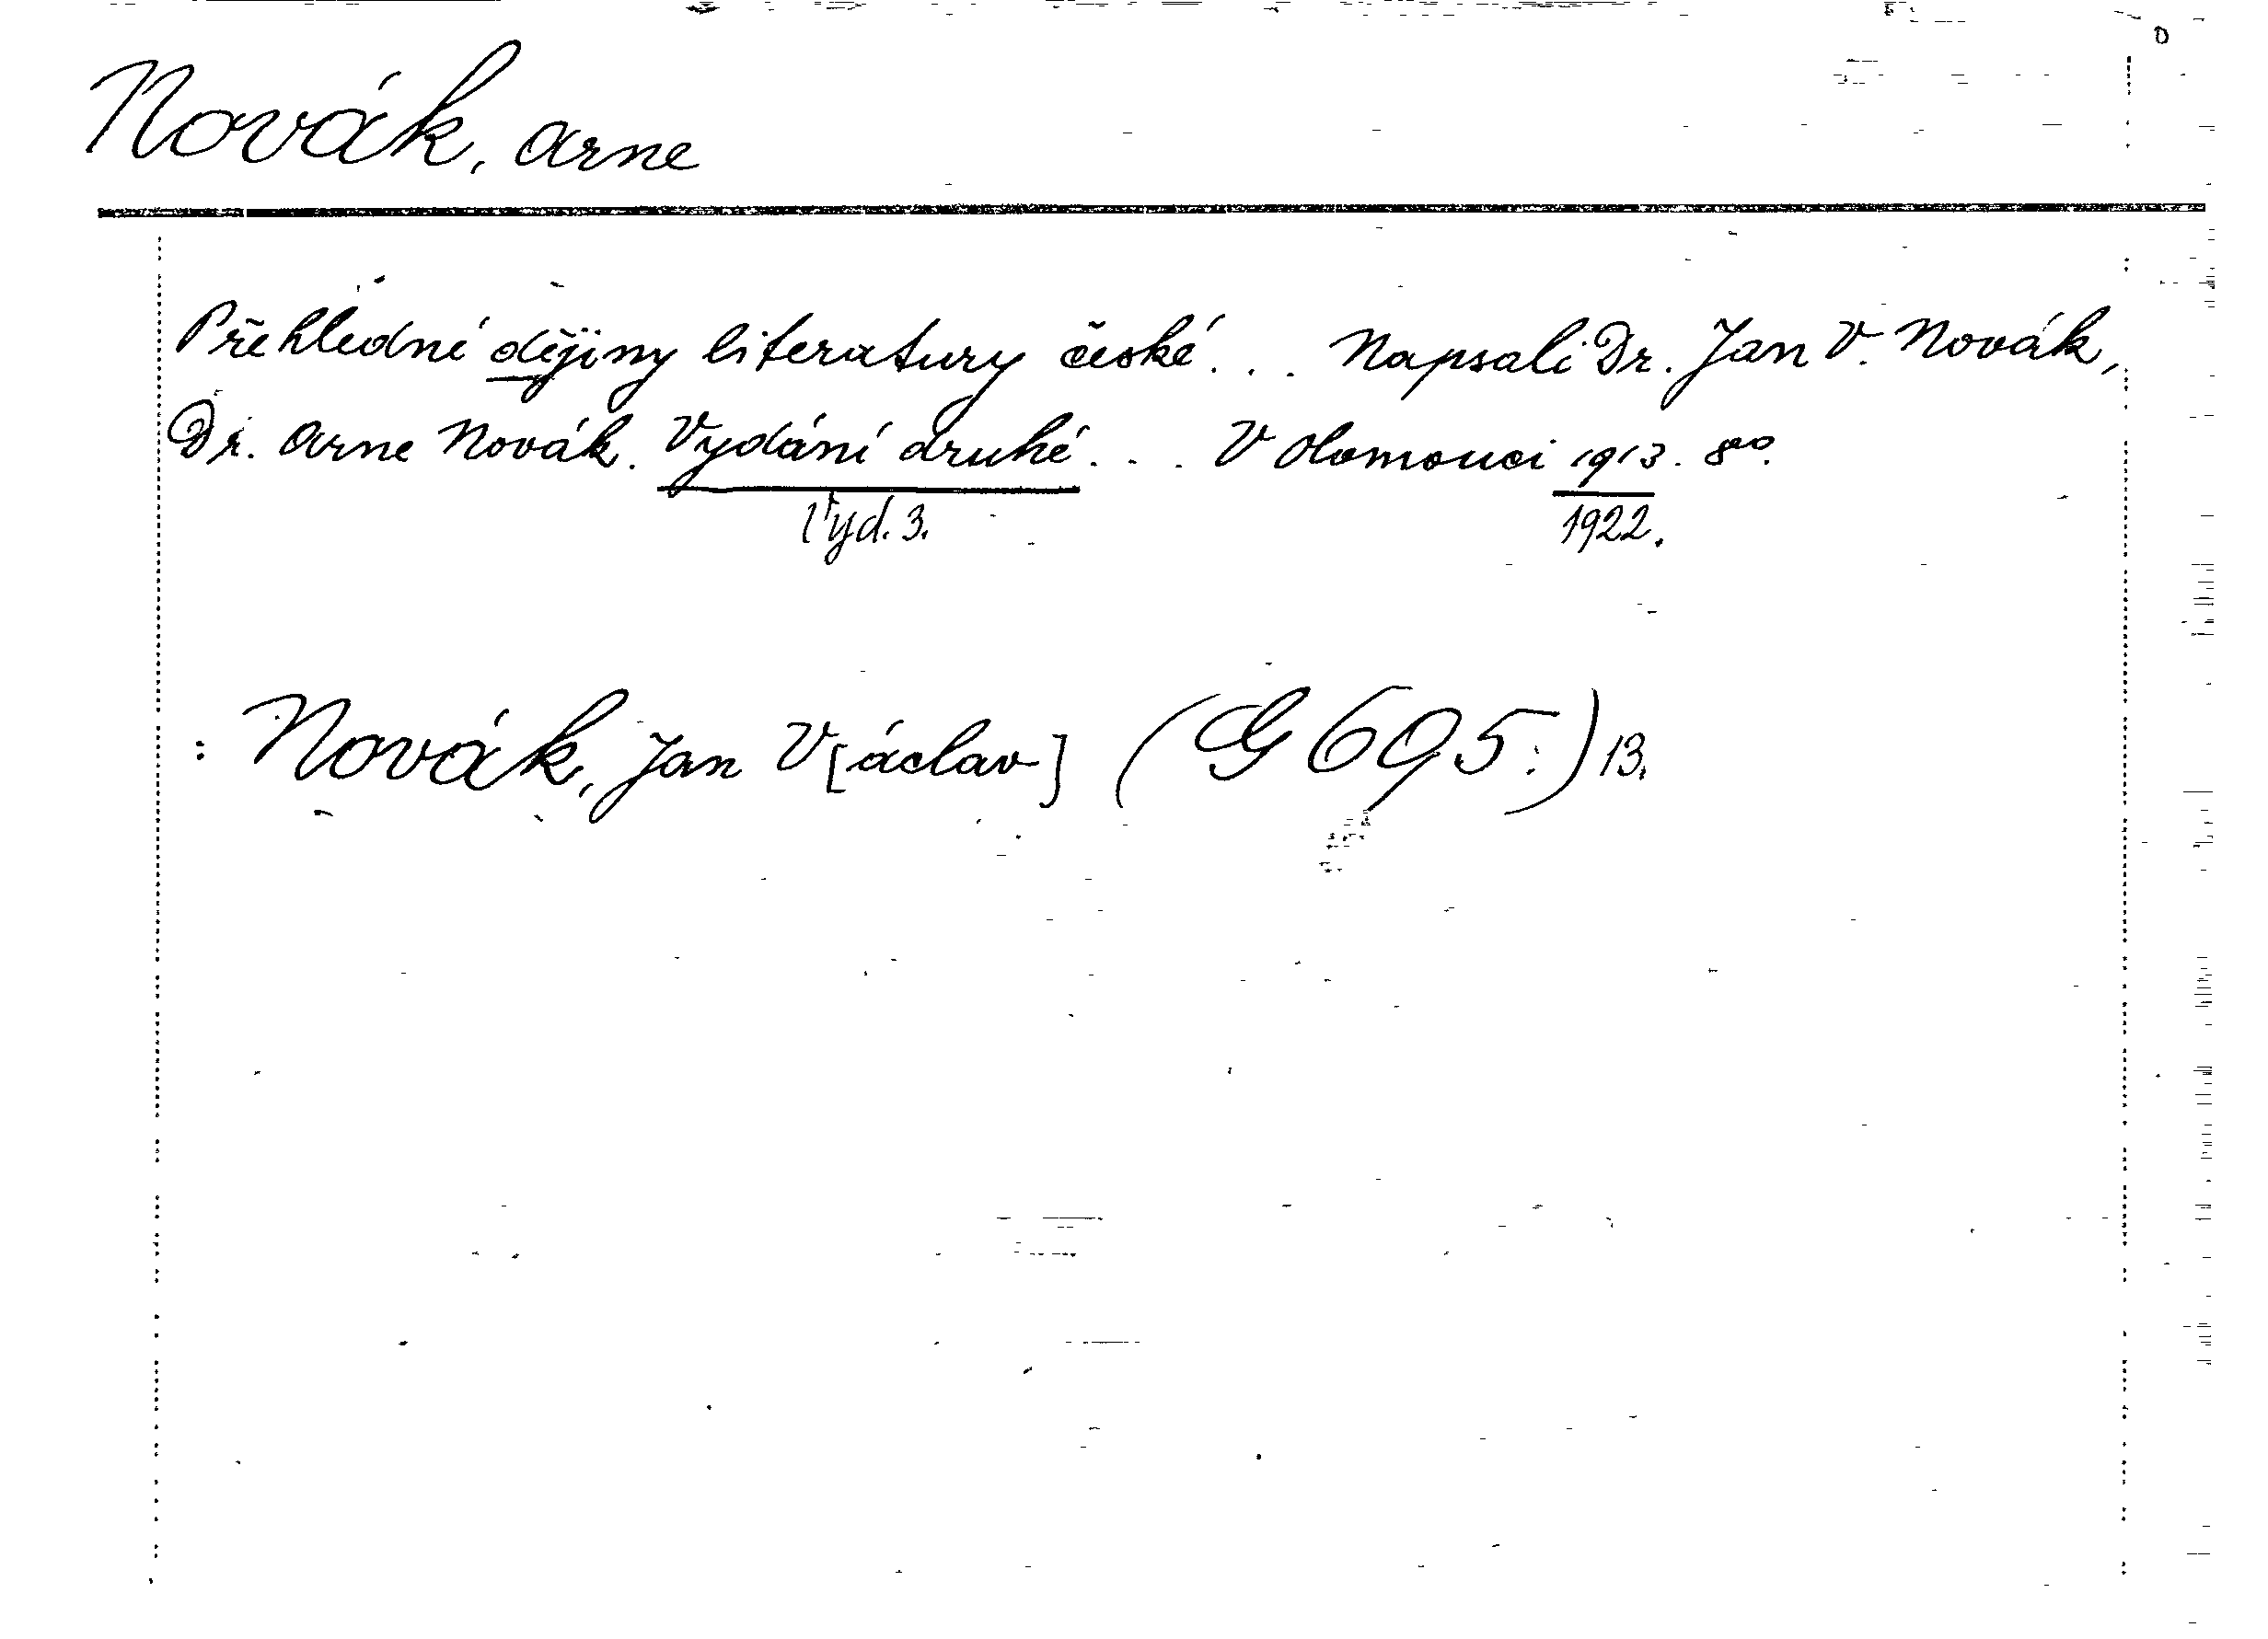 Novák, Arne
Přehledné dějiny literatury české... Napsali Dr. Jan V. Novák,
Dr. Arne Novák. Vydání druhé... V Olomouci 1913. 8º.
Vyd. 3. 1922.
: Novák, Jan V[áclav] (G 695:) 13.